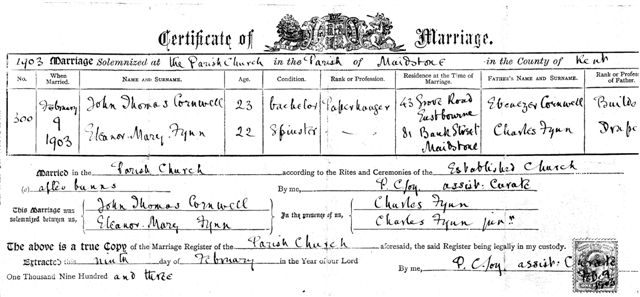 Certificate of Marriage.
1903 Marriage Solemnized at the Parish Church in the Parish of Maidstone in the County of Kent
No. When Married. Name and Surname. Age. Condition. Rank or Profession. Residence at the Time of Marriage. Father's Name and Surname. Rank or Profess of Father.
300 February 9 1903 John Thomas Cornwell 23 bachelor Paperhanger 43 Grove Road Eastbourne Ebenezer Cornwell Builde
Eleanor Mary Fynn 22 Spinster — 81 Bank Street Maidstone Charles Fynn Drape
Married in the Parish Church according to the Rites and Ceremonies of the Established Church
(c) after banns By me, assist. Curate
This Marriage was solemnized between us, John Thomas Cornwell Eleanor Mary Fynn In the presence of us, Charles Fynn Charles Fynn junr
The above is a true Copy of the Marriage Register of the Parish Church aforesaid, the said Register being legally in my custody.
Extracted this ninth day of February in the Year of our Lord
One Thousand Nine Hundred and three By me, assist. Curate
Feb. 9 1903